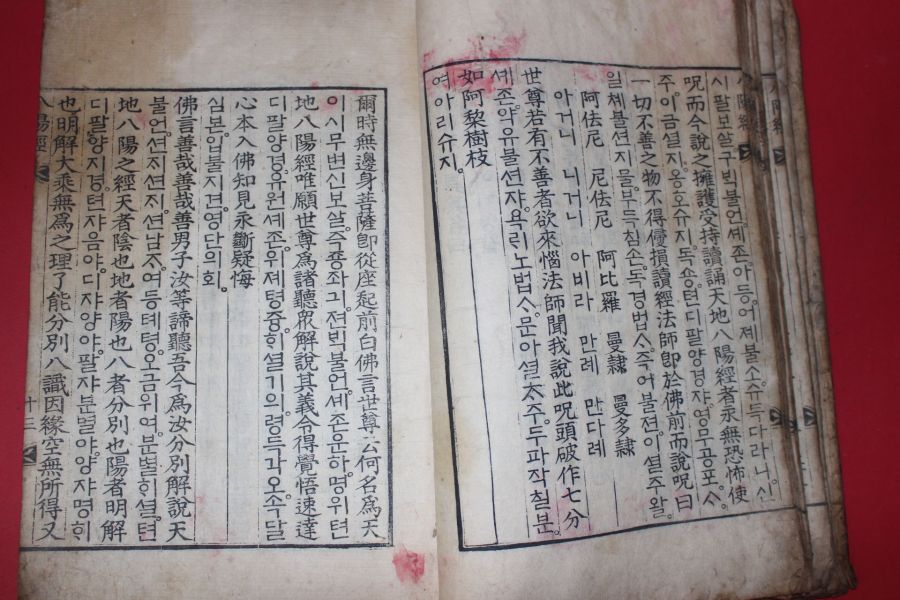 八陽經
시팔보살구빅불언。셰존。아등。어졔불소。슈득다라니。신
呪而今說之擁護受持讀誦天地八陽經者永無恐怖使
주이금셜지。옹호슈지。독숑。텬디팔양경쟈。영무공포。ᄉᆞ
一切不善之物不得侵損讀經法師即於佛前而說呪曰
일쳬불션지물。부득침소。독경법ᄉᆞ。즉어불젼。이셜주왈。
阿佉尼 尼佉尼 阿比羅 曼隷 曼多隷
아거니 니거니 아비라 만례 만다례
世尊若有不善者欲來惱法師聞我說此呪頭破作七分
셰존。약유불션쟈。욕ᄅᆡ노법ᄉᆞ。문아셜ᄎᆞ주。두파작칠분。
如阿黎樹枝
여아리슈지。
爾時無邊身菩薩即從座起前白佛言世尊云何名爲天
이시무변신보살。즉죵좌긔。젼ᄇᆡᆨ불언。셰존。운하。명위텬
地八陽經唯願世尊爲諸聽衆解說其義令得覺悟速達
디팔양경。유원셰존。위졔텽즁。ᄒᆡ셜기의。령득각오。속달
心本入佛知見永斷疑悔
심본。입불지견。영단의회。
佛言善哉善哉善男子汝等諦聽吾今爲汝分別解說天
불언。션ᄌᆡ션ᄌᆡ。션남ᄌᆞ。여등뎨텽。오금위여。분별ᄒᆡ셜。텬
地八陽之經天者陰也地者陽也八者分別也陽者明解
디팔양지경。텬쟈음야。디쟈양야。팔쟈분별야。양쟈명ᄒᆡ
也明解大乘無爲之理了能分別八識因緣空無所得又
八陽經 十二